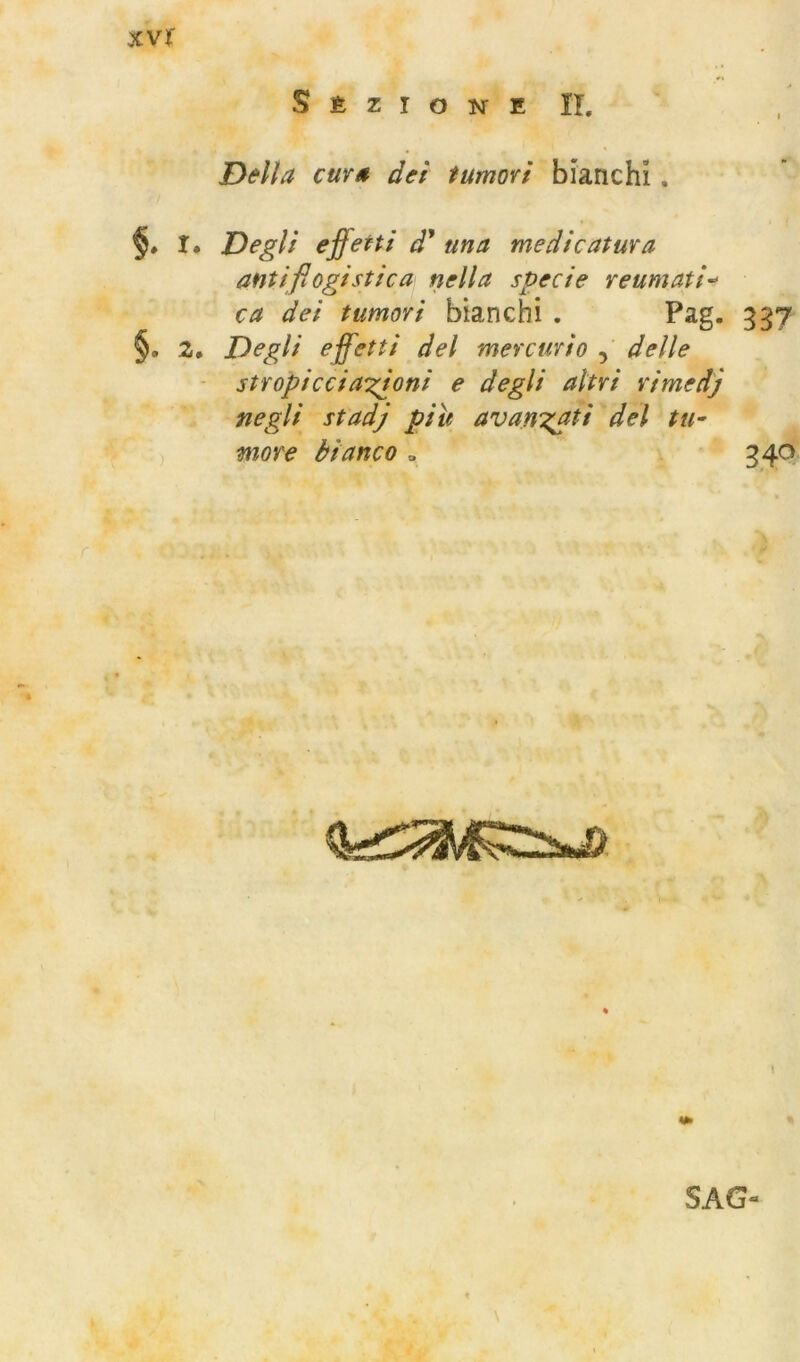 xvi
SEZIONE II.
Della cura dei tumori bianchi.
§. 1. Degli effetti d' una medicatura
antiflogistica nella specie reumati-
ca dei tumori bianchi. Pag. 337
§. 2. Degli effetti del mercurio, delle
stropicciazioni e degli altri rimedj
negli stadj più avanzati del tu-
more bianco. 340
SAG-